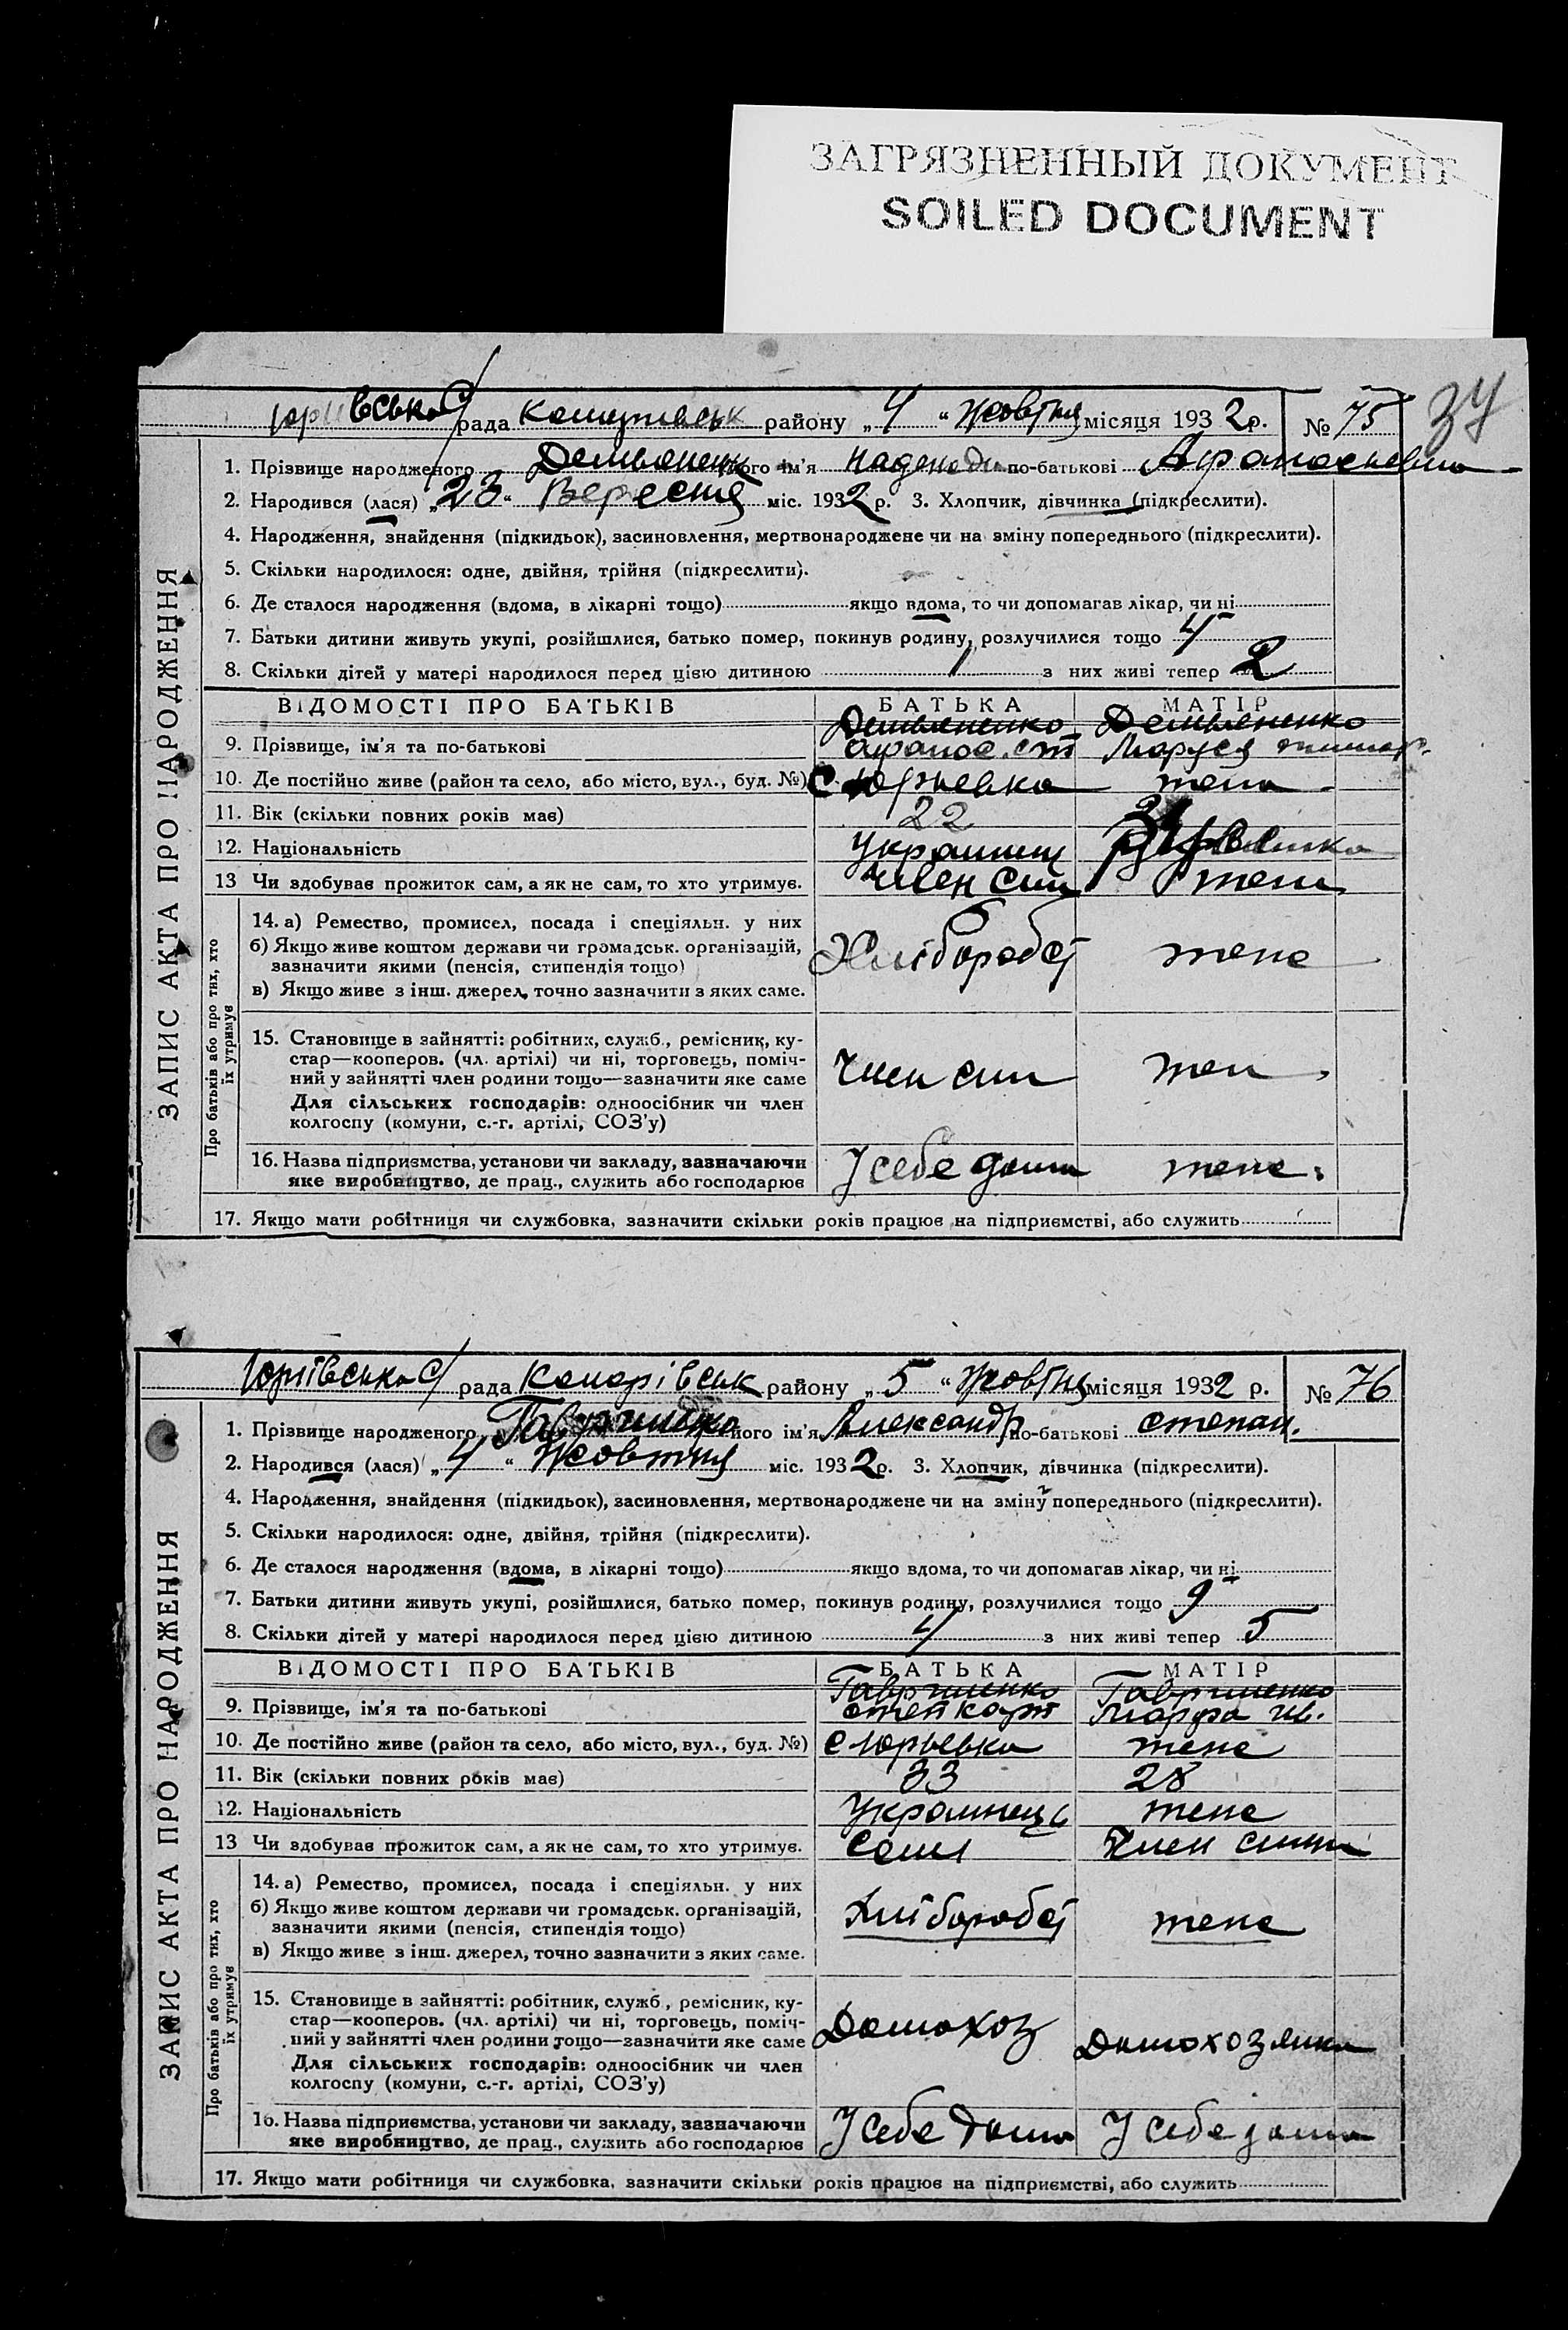 ЗАГРЯЗНЕННЫЙ ДОКУМЕНТ
SOILED DOCUMENT
34
рада району „4“ Жовтня місяця 1932 р. № 75
ЗАПИС АКТА ПРО НАРОДЖЕННЯ
1. Прізвище народженого його ім'я по-батькові
2. Народився (лася) „23“ Вересня міс. 1932 р. 3. Хлопчик, дівчинка (підкреслити).
4. Народження, знайдення (підкидьок), засиновлення, мертвонароджене чи на зміну попереднього (підкреслити).
5. Скільки народилося: одне, двійня, трійня (підкреслити).
6. Де сталося народження (вдома, в лікарні тощо) якщо вдома, то чи допомагав лікар, чи ні
7. Батьки дитини живуть укупі, розійшлися, батько помер, покинув родину, розлучилися тощо 4
8. Скільки дітей у матері народилося перед цією дитиною 1 з них живі тепер 2
ВІДОМОСТІ ПРО БАТЬКІВ БАТЬКА МАТІР
9. Прізвище, ім'я та по-батькові Маруся
10. Де постійно живе (район та село, або місто, вул., буд. №) с Юрьевка тече
11. Вік (скільки повних років має) 22
12. Національність
13 Чи здобував прожиток сам, а як не сам, то хто утримує. член
Про батьків або про тих, хто їх утримує
14. а) Ремество, промисел, посада і спеціяльн. у них
б) Якщо живе коштом держави чи громадськ. організацій,
зазначити якими (пенсія, стипендія тощо)
в) Якщо живе з інш. джерел, точно зазначити з яких саме.
Хлібороб
15. Становище в зайнятті: робітник, служб., ремісник, ку-
стар—кооперов. (чл. артілі) чи ні, торговець, поміч-
ний у зайнятті член родини тощо—зазначити яке саме
Для сільських господарів: одноосібник чи член
колгоспу (комуни, с.-г. артілі, СОЗ'у)
16. Назва підприємства, установи чи закладу, зазначаючи
яке виробництво, де прац., служить або господарює
У себе дома
17. Якщо мати робітниця чи службовка, зазначити скільки років працює на підприємстві, або служить
Юріївська с/ рада району „5“ Жовтня місяця 1932 р. № 76
ЗАПИС АКТА ПРО НАРОДЖЕННЯ
1. Прізвище народженого його ім'я Александр по-батькові степан.
2. Народився (лася) „4“ Жовтня міс. 1932 р. 3. Хлопчик, дівчинка (підкреслити).
4. Народження, знайдення (підкидьок), засиновлення, мертвонароджене чи на зміну попереднього (підкреслити).
5. Скільки народилося: одне, двійня, трійня (підкреслити).
6. Де сталося народження (вдома, в лікарні тощо) якщо вдома, то чи допомагав лікар, чи ні
7. Батьки дитини живуть укупі, розійшлися, батько помер, покинув родину, розлучилися тощо 9
8. Скільки дітей у матері народилося перед цією дитиною 4 з них живі тепер 5
ВІДОМОСТІ ПРО БАТЬКІВ БАТЬКА МАТІР
9. Прізвище, ім'я та по-батькові
10. Де постійно живе (район та село, або місто, вул., буд. №) с Юрьевка
11. Вік (скільки повних років має) 33 28
12. Національність Украинець
13 Чи здобував прожиток сам, а як не сам, то хто утримує. Сам Член
Про батьків або про тих, хто їх утримує
14. а) Ремество, промисел, посада і спеціяльн. у них
б) Якщо живе коштом держави чи громадськ. організацій,
зазначити якими (пенсія, стипендія тощо)
в) Якщо живе з інш. джерел, точно зазначити з яких саме.
Хлібороб
15. Становище в зайнятті: робітник, служб., ремісник, ку-
стар—кооперов. (чл. артілі) чи ні, торговець, поміч-
ний у зайнятті член родини тощо—зазначити яке саме
Для сільських господарів: одноосібник чи член
колгоспу (комуни, с.-г. артілі, СОЗ'у)
Домохоз Домохозяика
16. Назва підприємства, установи чи закладу, зазначаючи
яке виробництво, де прац., служить або господарює
У себе дома У себе дома
17. Якщо мати робітниця чи службовка, зазначити скільки років працює на підприємстві, або служить